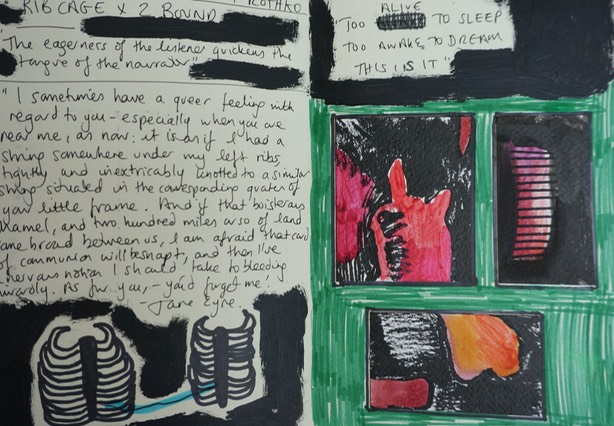 RIB CAGE X 2 BOUND
"The eagerness of the listener quickens the
tongue of the narrator"
"I sometimes have a queer feeling with
regard to you - especially when you are
near me, as now: it is as if I had a
string somewhere under my left ribs,
tightly and inextricably knotted to a similar
string situated in the corresponding quarter of
your little frame. And if that boisterous
channel, and two hundred miles or so of land
come broad between us, I am afraid that cord
of communion will be snapt; and then I've
nervous notion I should take to bleeding
inwardly. As for you, - you'd forget me."
- Jane Eyre.
ALIVE
"TOO TO SLEEP
TOO AWAKE TO DREAM
THIS IS IT"